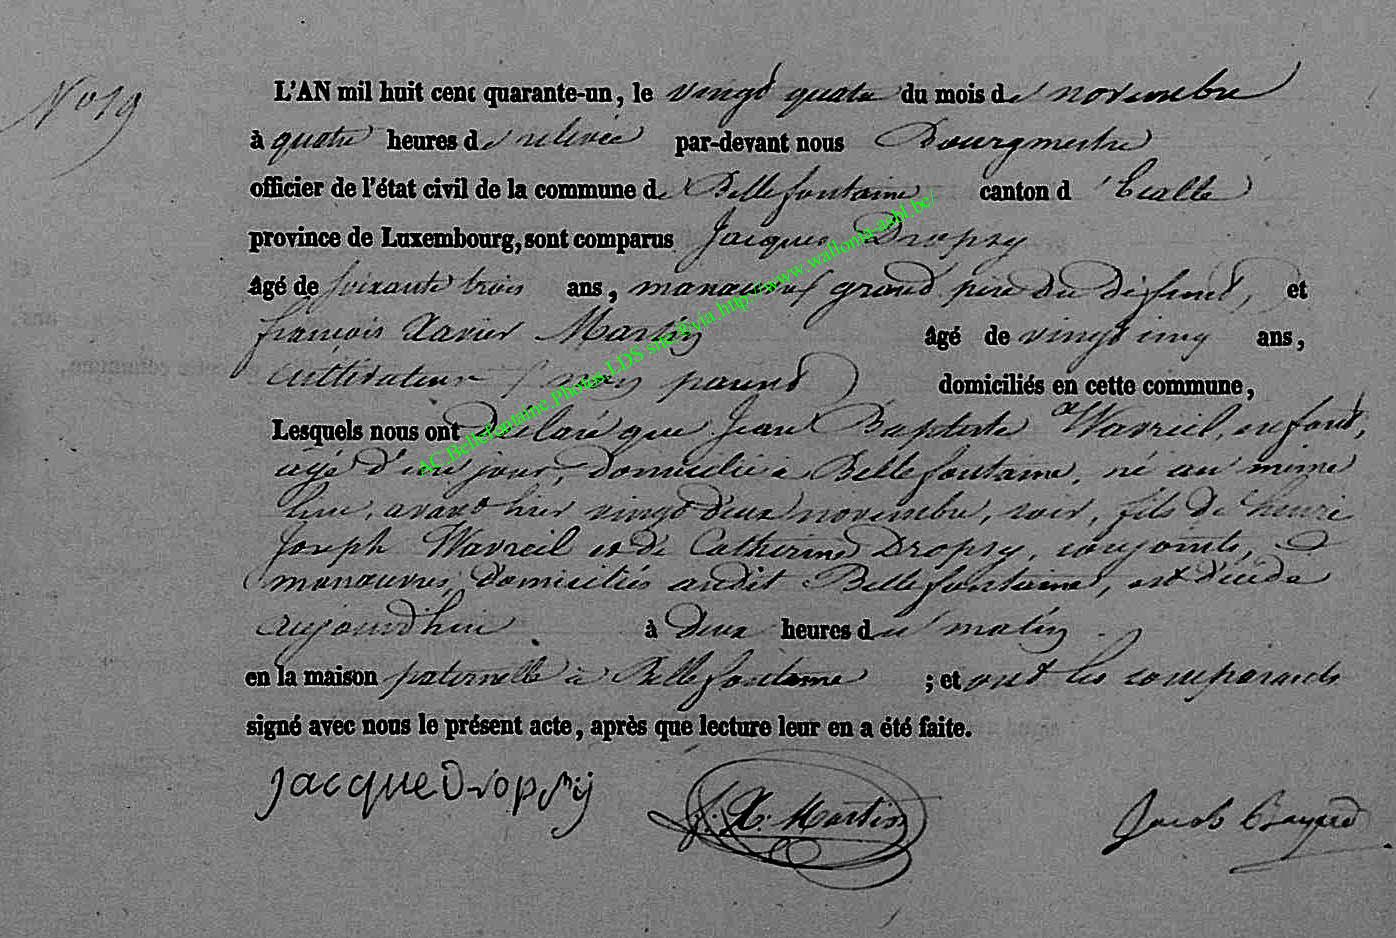 N° 19
L'AN mil huit cent quarante-un, le vingt quatre du mois de novembre
à quatre heures de relevée par-devant nous Bourgmestre
officier de l'état civil de la commune de Bellefontaine canton d'Etalle
province de Luxembourg, sont comparus Jacques Dropsy
âgé de soixante trois ans, manœuvre grand père du défunt, et
françois Xavier Martin âgé de vingt cinq ans,
cultivateur non parent domiciliés en cette commune,
Lesquels nous ont Déclaré que Jean Baptiste Wavreil, enfant,
âgé d'un jour, domicilié à Bellefontaine, né au même
lieu, avant hier vingt deux novembre, soir, fils de henri
Joseph Wavreil et de Catherine Dropsy, conjoints,
manœuvres, domiciliés audit Bellefontaine, est décédé
aujourdhui à deux heures du matin
en la maison paternelle à Bellefontaine ; et ont les comparants
signé avec nous le présent acte, après que lecture leur en a été faite.
Jacque Dropsÿ
f. X. Martin
Jacob
AC Bellefontaine Photos LDS via http://www.wallonia-asbl.be/